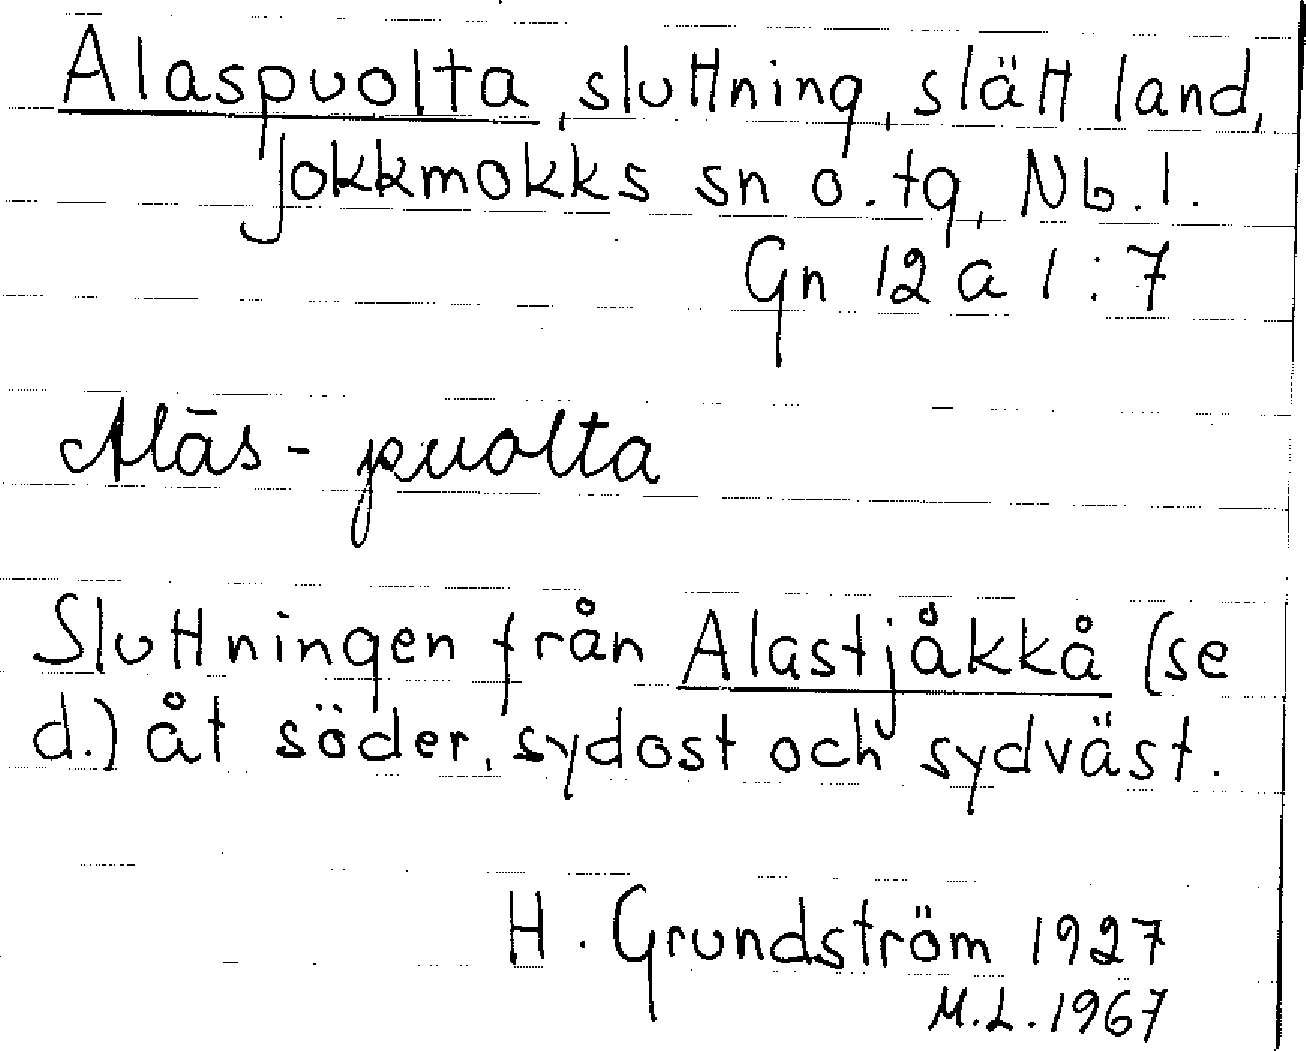 Alaspuolta, sluttning, slätt land,
Jokkmokks sn o. tg, Nb. l.
Gn 12 a 1:7
Alās-puolta
Sluttningen från Alastjåkkå (se
d.) åt söder, sydost och sydväst.
H. Grundström 1927
M.L. 1967